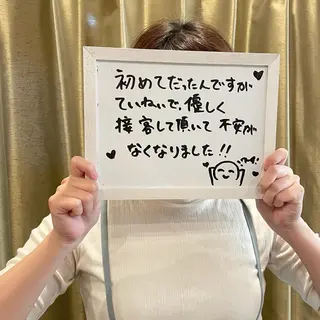 初めてだったんですが
ていねいで、優しく
接客して頂いて 不安が
なくなりました!!